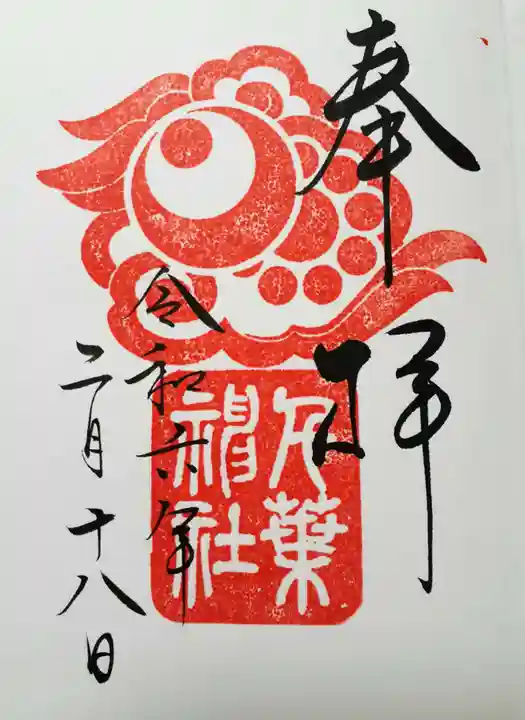 奉拝
千葉
神社
令和六年
二月十八日